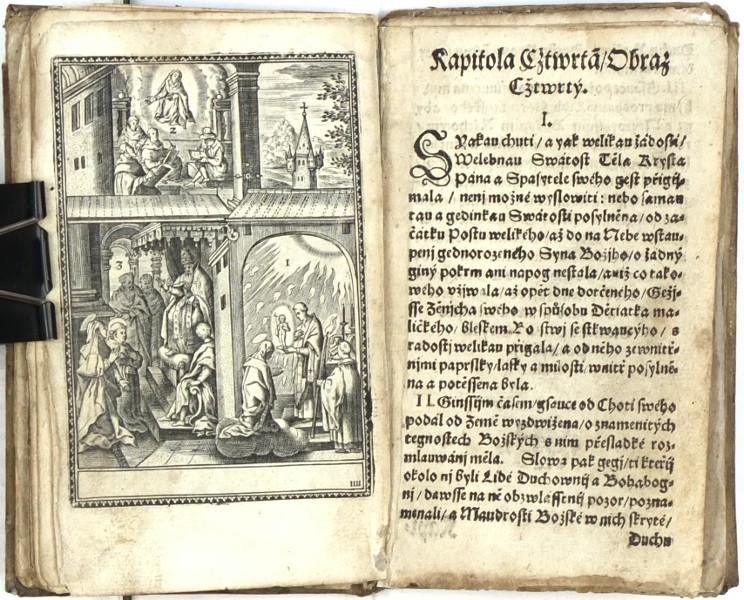 2
3
1
IIII
Kapitola Cžtwrtá/Obraz
Cžtwrtý.
I.
S Yakau chuti / a yak welikau žádostí /
Welebnau Swátost Těla Krysta
Pána a Spasytele swého gest přigij-
mala / nenj možné wyslowiti: nebo samau
tau a gedinkau Swátostí posylněna / od za-
čátku Postu welikého / až do na Nebe wstau-
penj gednorozeného Syna Božjho / o žádný
giný pokrm ani nápog nestala / aniž co tako-
wého vžjwala / až opět dne dotčeného / Gežj-
sse Ženjcha swého w spůsobu Děťátka ma-
ličkého / bleskem se stkwaucýho / s
radostj welikau přigala / a od něho zewnitř-
njmi paprslky / lásky a milosti / wnitř posylně-
na a potěssena byla.
II. Ginssým časem / gsauce od Choti swého
podál od Země wyzdwižena / o znamenitých
tegnostech Božských s njm přesladké roz-
mlauwánj měla. Slowa pak gegj / ti kteřij
okolo nj byli Lidé Duchownij a Bohabog-
nj / dawsse na ně obzwlásstnij pozor / pozna-
menali / a Maudrosti Božské w nich skryté /
Duchu